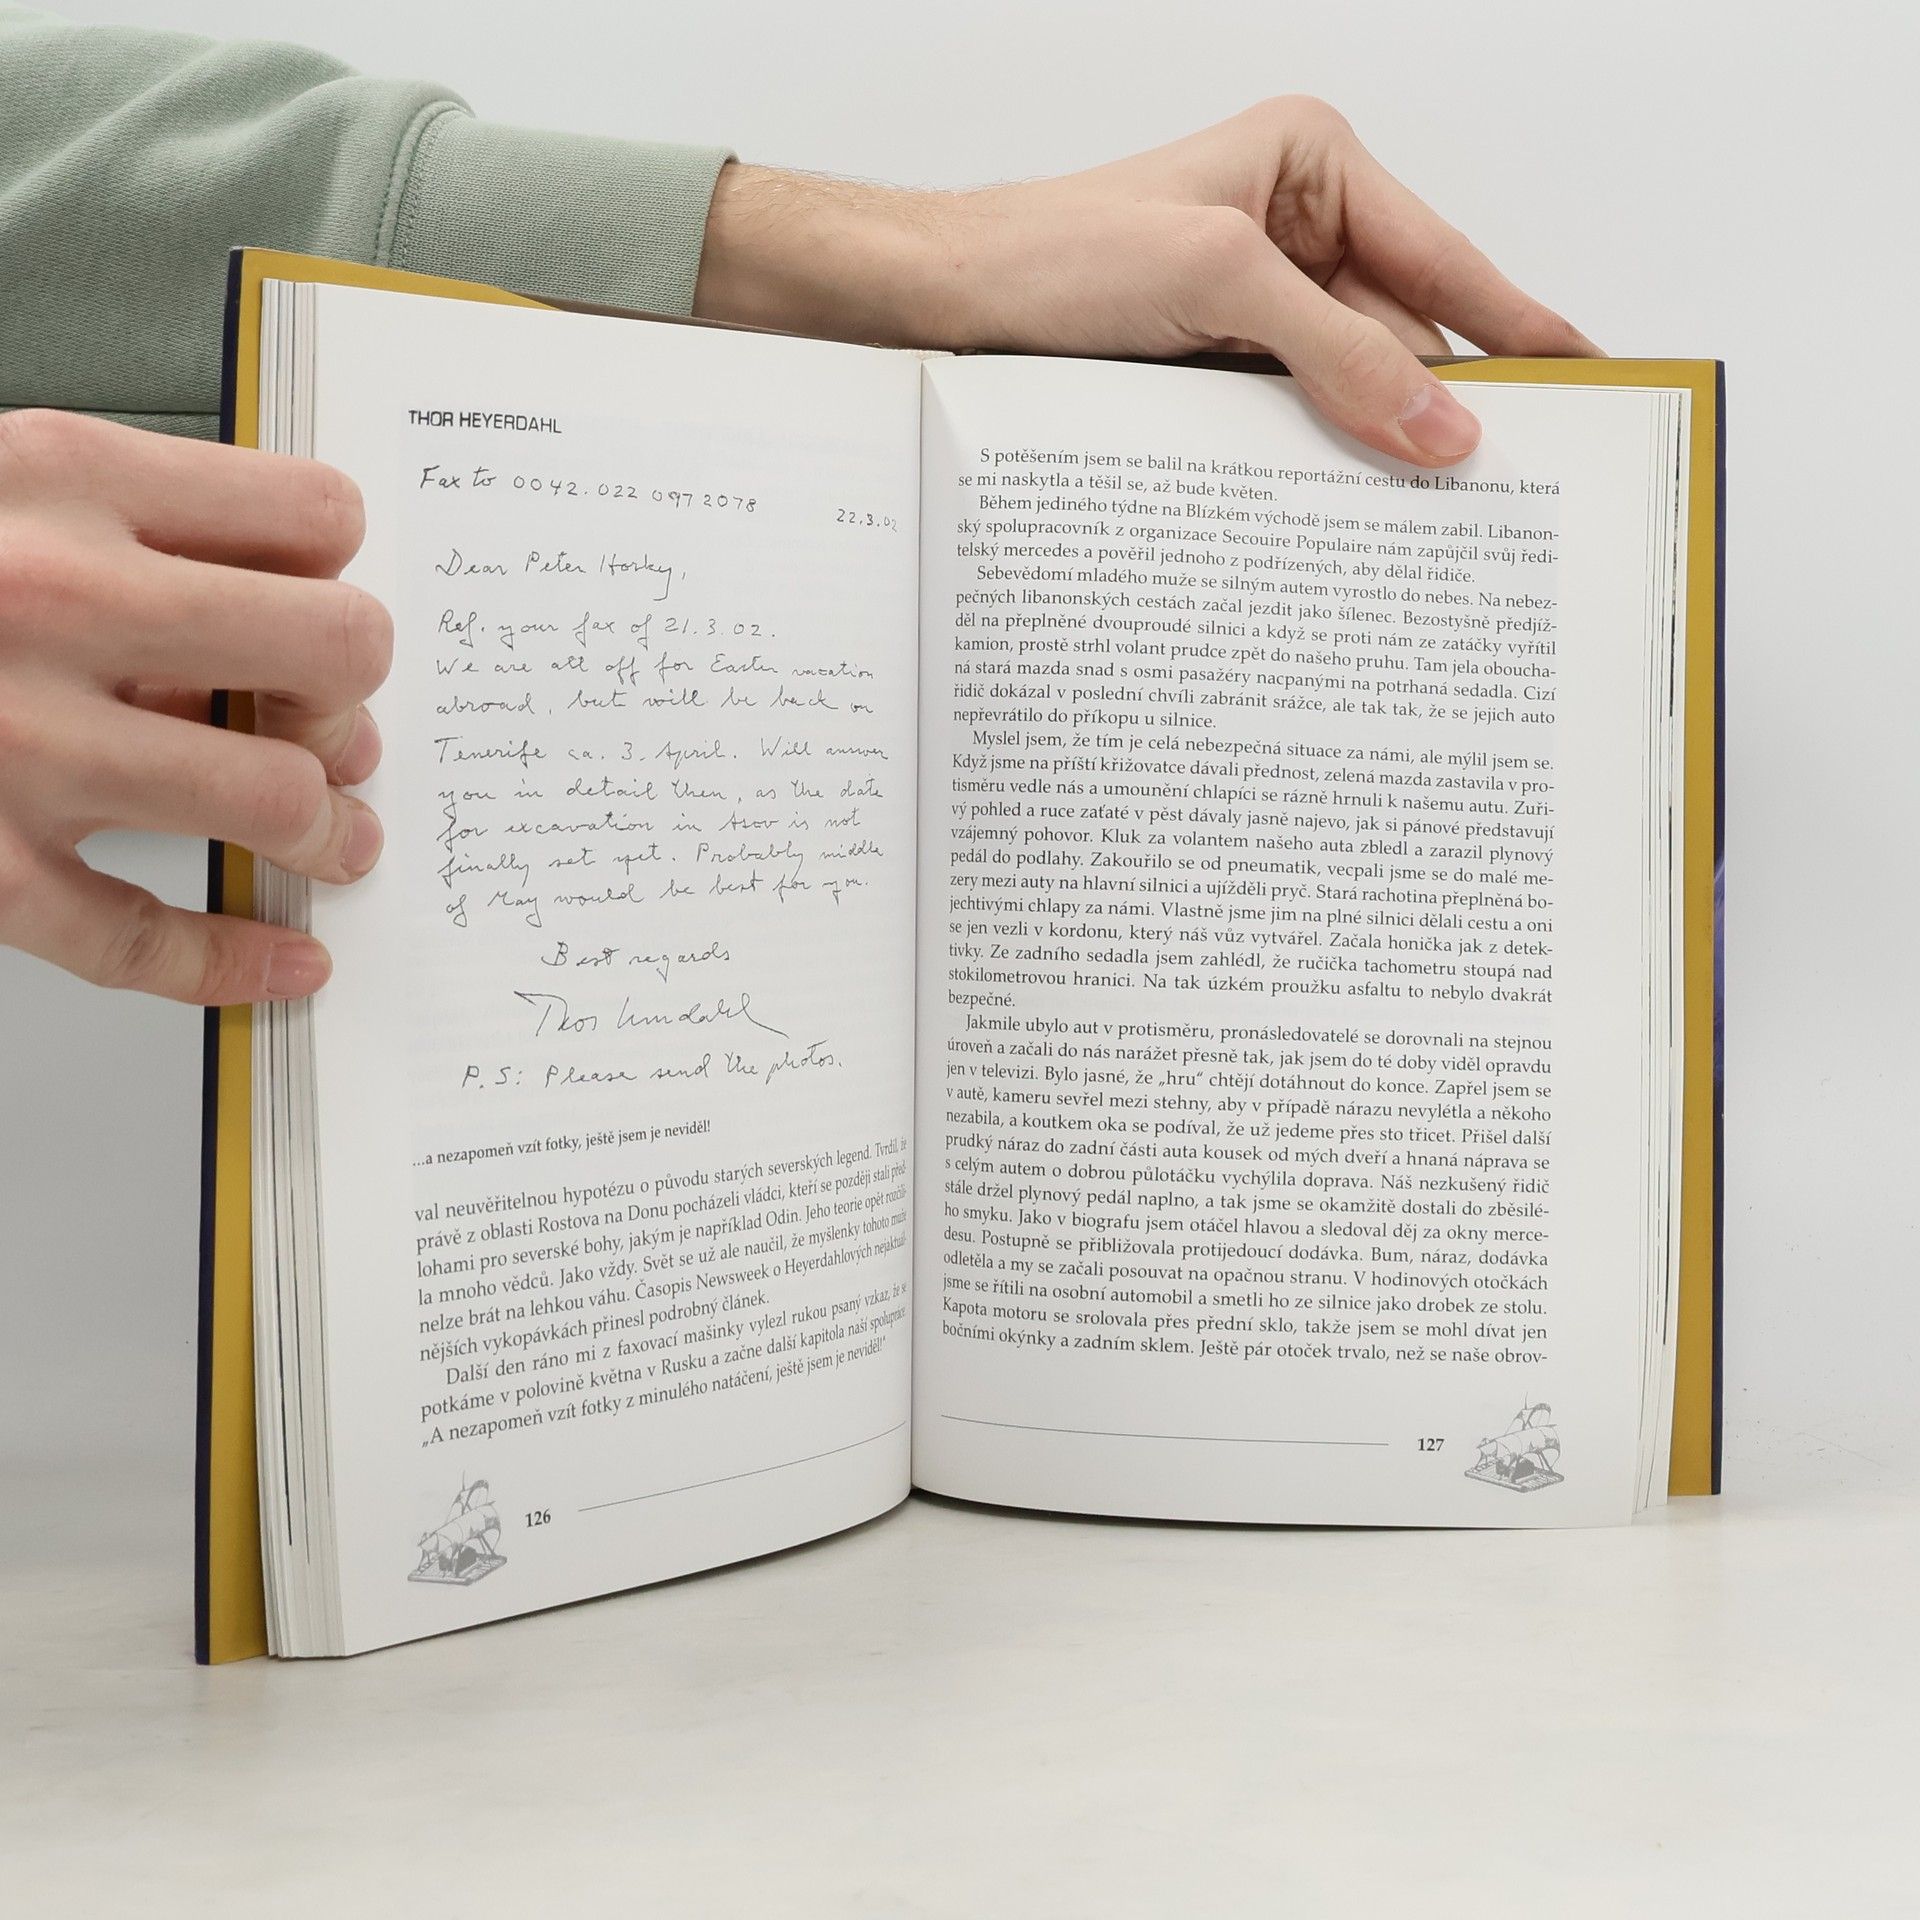 THOR HEYERDAHL
Fax to 0042.022 097 2078
22.3.02
Dear Peter Horky,
Ref. your fax of 21.3.02.
We are all off for Easter vacation
abroad, but will be back on
Tenerife ca. 3. April. Will answer
you in detail then, as the date
for excavation in Asov is not
finally set yet. Probably middle
of May would be best for you.
Best regards
Thor Heyerdahl
P.S: Please send the photos.
...a nezapomeň vzít fotky, ještě jsem je neviděl!
val neuvěřitelnou hypotézu o původu starých severských legend. Tvrdil, že
právě z oblasti Rostova na Donu pocházeli vládci, kteří se později stali před-
lohami pro severské bohy, jakým je například Odin. Jeho teorie opět rozčíli-
la mnoho vědců. Jako vždy. Svět se už ale naučil, že myšlenky tohoto muže
nelze brát na lehkou váhu. Časopis Newsweek o Heyerdahlových nejaktuál-
nějších vykopávkách přinesl podrobný článek.
Další den ráno mi z faxovací mašinky vylezl rukou psaný vzkaz, že se
potkáme v polovině května v Rusku a začne další kapitola naší spolupráce.
„A nezapomeň vzít fotky z minulého natáčení, ještě jsem je neviděl!“
126
S potěšením jsem se balil na krátkou reportážní cestu do Libanonu, která
se mi naskytla a těšil se, až bude květen.
Během jediného týdne na Blízkém východě jsem se málem zabil. Libanon-
ský spolupracovník z organizace Secouire Populaire nám zapůjčil svůj ředi-
telský mercedes a pověřil jednoho z podřízených, aby dělal řidiče.
Sebevědomí mladého muže se silným autem vyrostlo do nebes. Na nebez-
pečných libanonských cestách začal jezdit jako šílenec. Bezostyšně předjíž-
děl na přeplněné dvouproudé silnici a když se proti nám ze zatáčky vyřítil
kamion, prostě strhl volant prudce zpět do našeho pruhu. Tam jela oboucha-
ná stará mazda snad s osmi pasažéry nacpanými na potrhaná sedadla. Cizí
řidič dokázal v poslední chvíli zabránit srážce, ale tak tak, že se jejich auto
nepřevrátilo do příkopu u silnice.
Myslel jsem, že tím je celá nebezpečná situace za námi, ale mýlil jsem se.
Když jsme na příští křižovatce dávali přednost, zelená mazda zastavila v pro-
tisměru vedle nás a umounění chlapíci se rázně hrnuli k našemu autu. Zuři-
vý pohled a ruce zaťaté v pěst dávaly jasně najevo, jak si pánové představují
vzájemný pohovor. Kluk za volantem našeho auta zbledl a zarazil plynový
pedál do podlahy. Zakouřilo se od pneumatik, vecpali jsme se do malé me-
zery mezi auty na hlavní silnici a ujížděli pryč. Stará rachotina přeplněná bo-
jechtivými chlapy za námi. Vlastně jsme jim na plné silnici dělali cestu a oni
se jen vezli v kordonu, který náš vůz vytvářel. Začala honička jak z detek-
tivky. Ze zadního sedadla jsem zahlédl, že ručička tachometru stoupá nad
stokilometrovou hranici. Na tak úzkém proužku asfaltu to nebylo dvakrát
bezpečné.
Jakmile ubylo aut v protisměru, pronásledovatelé se dorovnali na stejnou
úroveň a začali do nás narážet přesně tak, jak jsem do té doby viděl opravdu
jen v televizi. Bylo jasné, že „hru“ chtějí dotáhnout do konce. Zapřel jsem se
v autě, kameru sevřel mezi stehny, aby v případě nárazu nevylétla a někoho
nezabila, a koutkem oka se podíval, že už jedeme přes sto třicet. Přišel další
prudký náraz do zadní části auta kousek od mých dveří a hnaná náprava se
s celým autem o dobrou půlotáčku vychýlila doprava. Náš nezkušený řidič
stále držel plynový pedál naplno, a tak jsme se okamžitě dostali do zběsilé-
ho smyku. Jako v biografu jsem otáčel hlavou a sledoval děj za okny merce-
desu. Postupně se přibližovala protijedoucí dodávka. Bum, náraz, dodávka
odletěla a my se začali posouvat na opačnou stranu. V hodinových otočkách
jsme se řítili na osobní automobil a smetli ho ze silnice jako drobek ze stolu.
Kapota motoru se srolovala přes přední sklo, takže jsem se mohl dívat jen
bočními okýnky a zadním sklem. Ještě pár otoček trvalo, než se naše obrov-
127